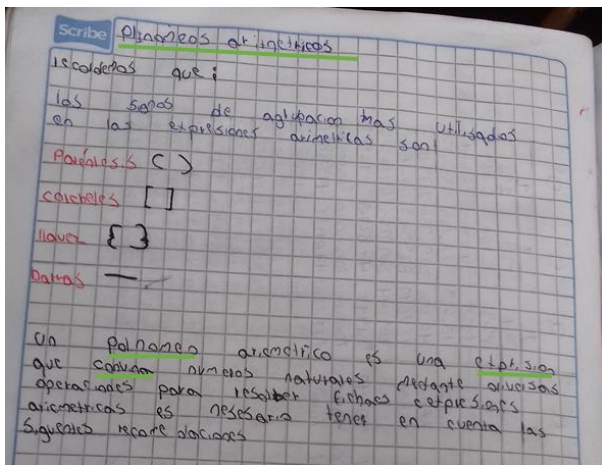 Scribe
Plinomeos aritmetricos
recordemos que:
los signos de agrupacion mas utilisados
en las expresiones arimetricas son:
Parentesis ( )
corchetes [ ]
llavez { }
barras —
Un polnomeo aricmetrico es una expresion
que convinan numeros naturales mediante diversas
operaciones para resolber fichaes expresiones
aricmetricas es nesesario tener en cuenta las
siguentes recomendaciones